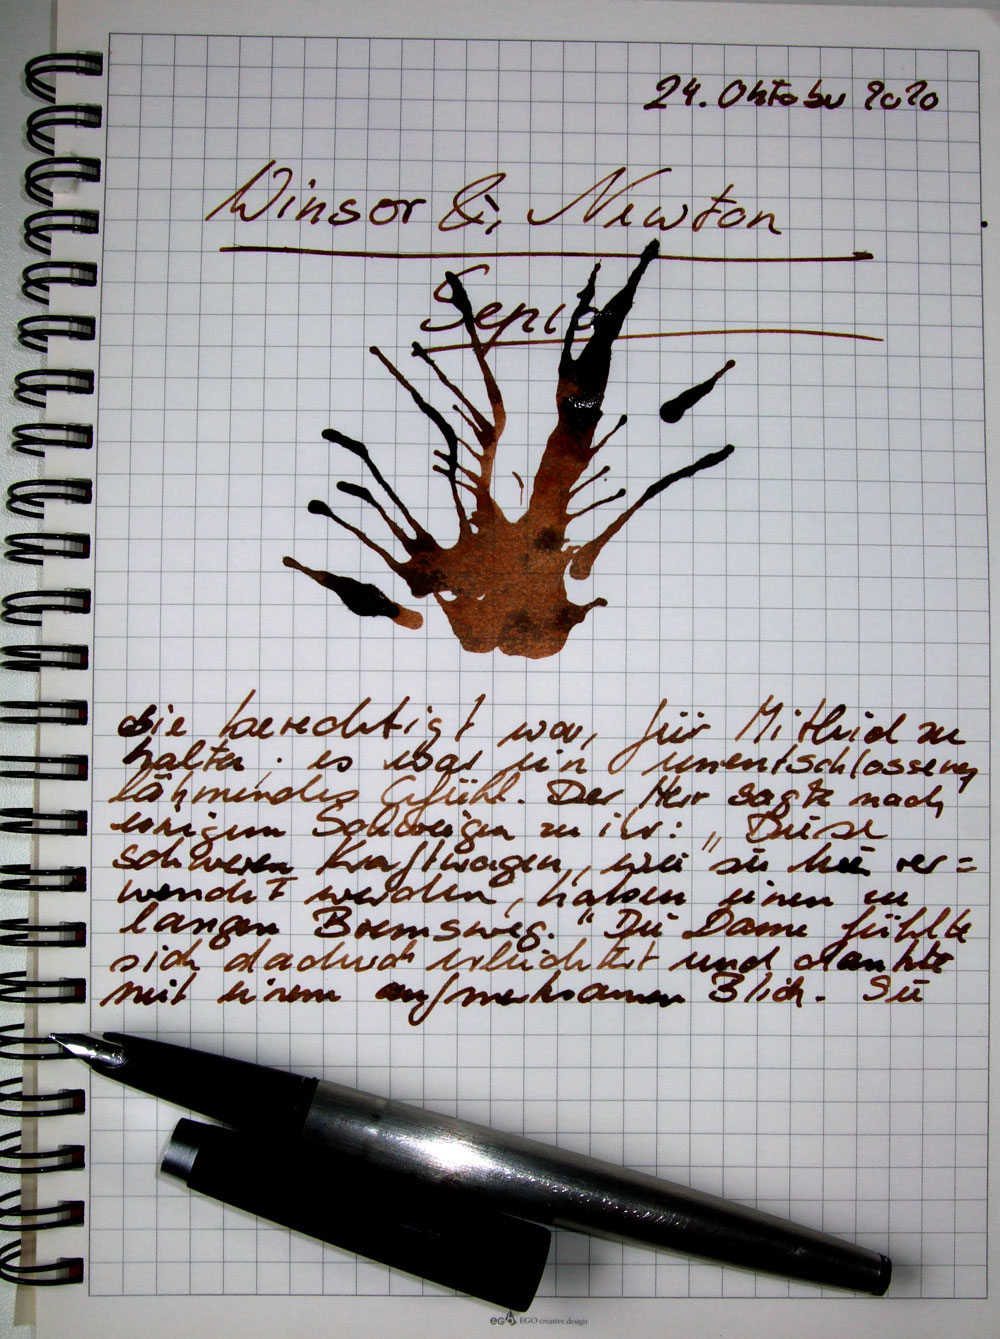 24. Oktober 2020
Winsor & Newton
Sepia
die berechtigt war, für Mitleid zu
halten; es war ein unentschlossenes,
lähmendes Gefühl. Der Herr sagte nach
einigem Schweigen zu ihr: „Diese
schweren Kraftwagen, wie sie hie ver=
wendet werden, haben einen zu
langen Bremsweg.“ Die Dame fühlte
sich dadurch erleichtert und dankte
mit einem aufmerksamen Blick. Sie
EGO EGO creative design